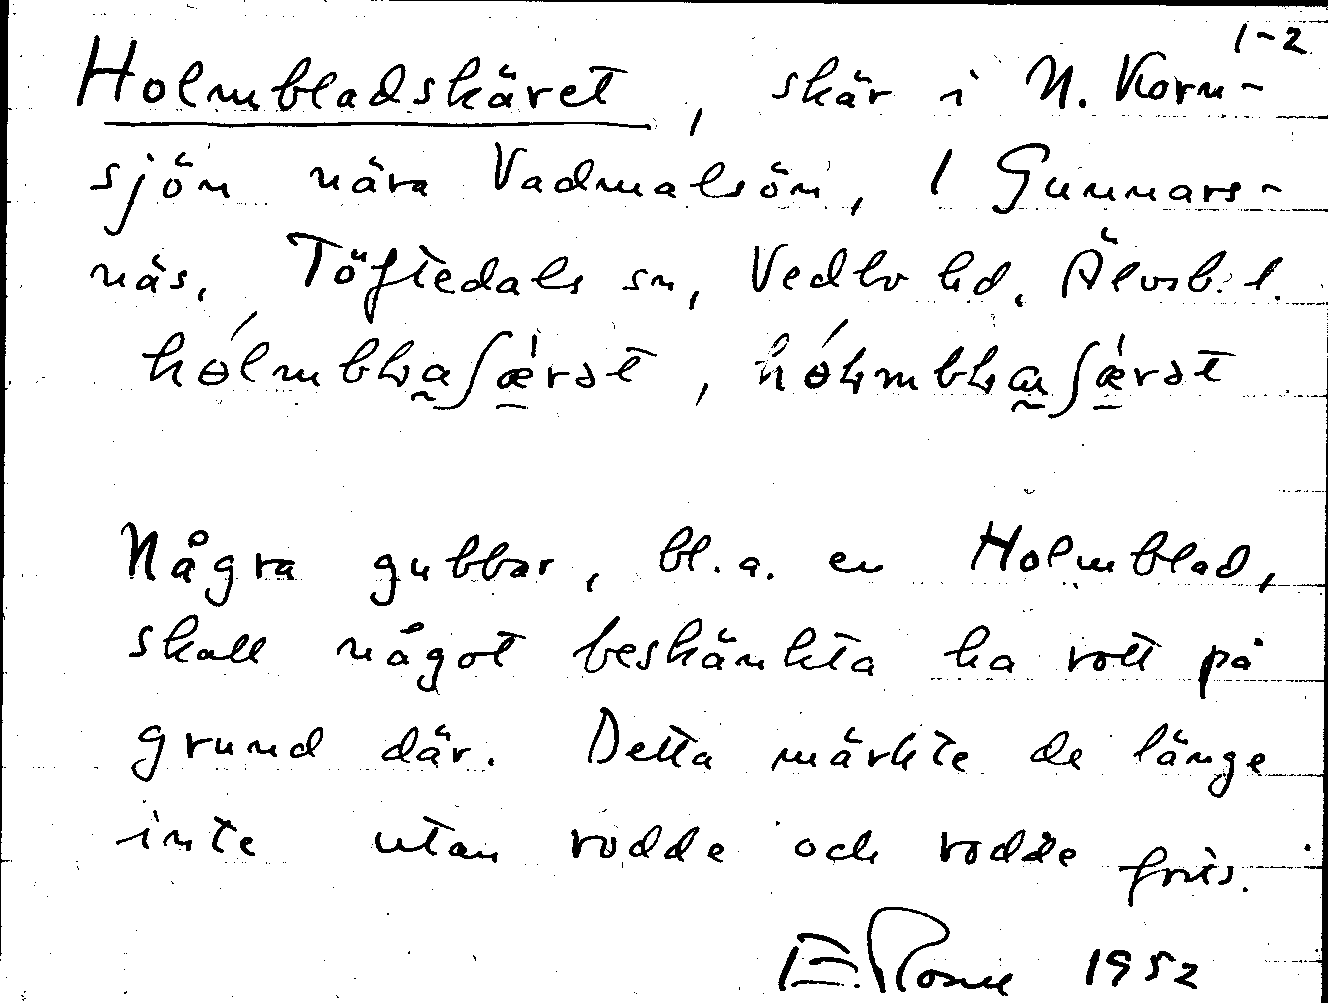 1-2
Holmbladskäret, skär i N. Korn-
sjön nära Vadmalsön, 1 Gunnars-
näs, Töftedals sn, Vedbo hd, Älvsb. l.
Några gubbar, bl.a. en Holmblad,
skall något beskänkta ha rott på
grund där. Detta märkte de länge
inte utan rodde och rodde
E. 1952